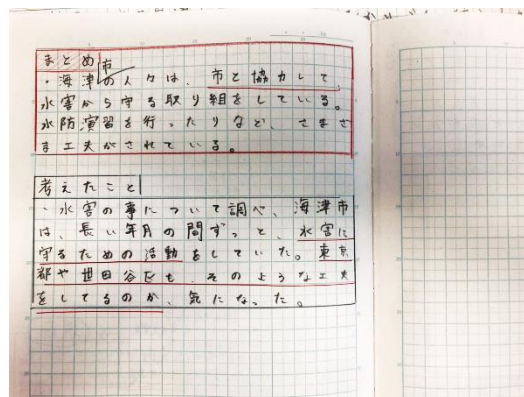 まとめ
・海津市の人々は、市と協力して、
水害から守る取り組をしている。
水防演習を行ったりなど、さまざ
ま工夫がされている。
考えたこと
・水害の事について調べ、海津市
は、長い年月の間ずっと、水害に
守るための活動をしていた。東京
都や世田谷区も、そのような工夫
をしてるのか、気になった。